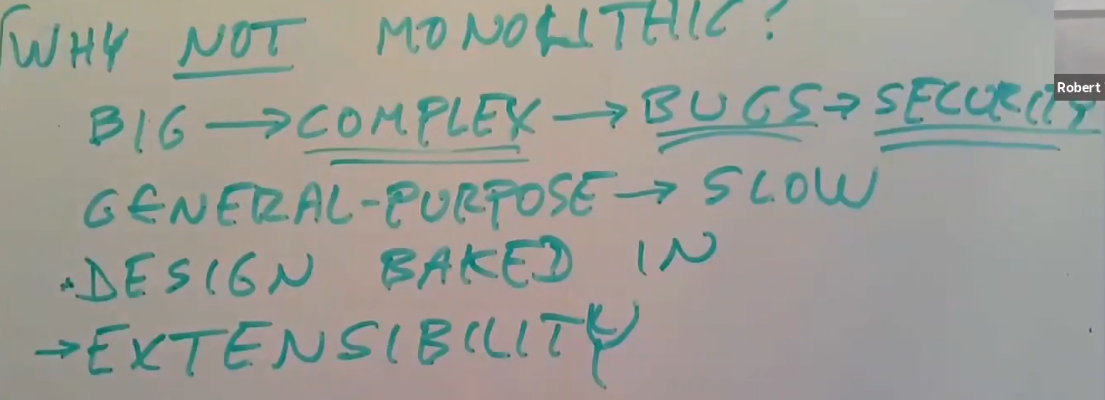 WHY NOT MONOLITHIC?
Robert
BIG → COMPLEX → BUGS → SECURITY
GENERAL-PURPOSE → SLOW
. DESIGN BAKED IN
→ EXTENSIBILITY